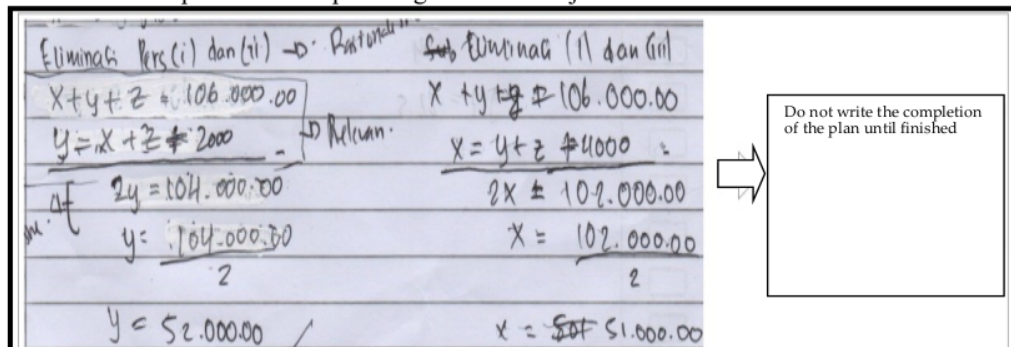 Eliminasi Pers (i) dan (ii) → Rasional
x + y + z = 106.000.00
y = x + z = 2000 -
→ Relevan.
2y = 104.000.00
y = 104.000.00
2
y = 52.000.00
Eliminasi (i) dan (iii)
x + y + z = 106.000.00
x = y + z = 4000 -
2x = 102.000.00
x = 102.000.00
2
x = 51.000.00
Do not write the completion
of the plan until finished